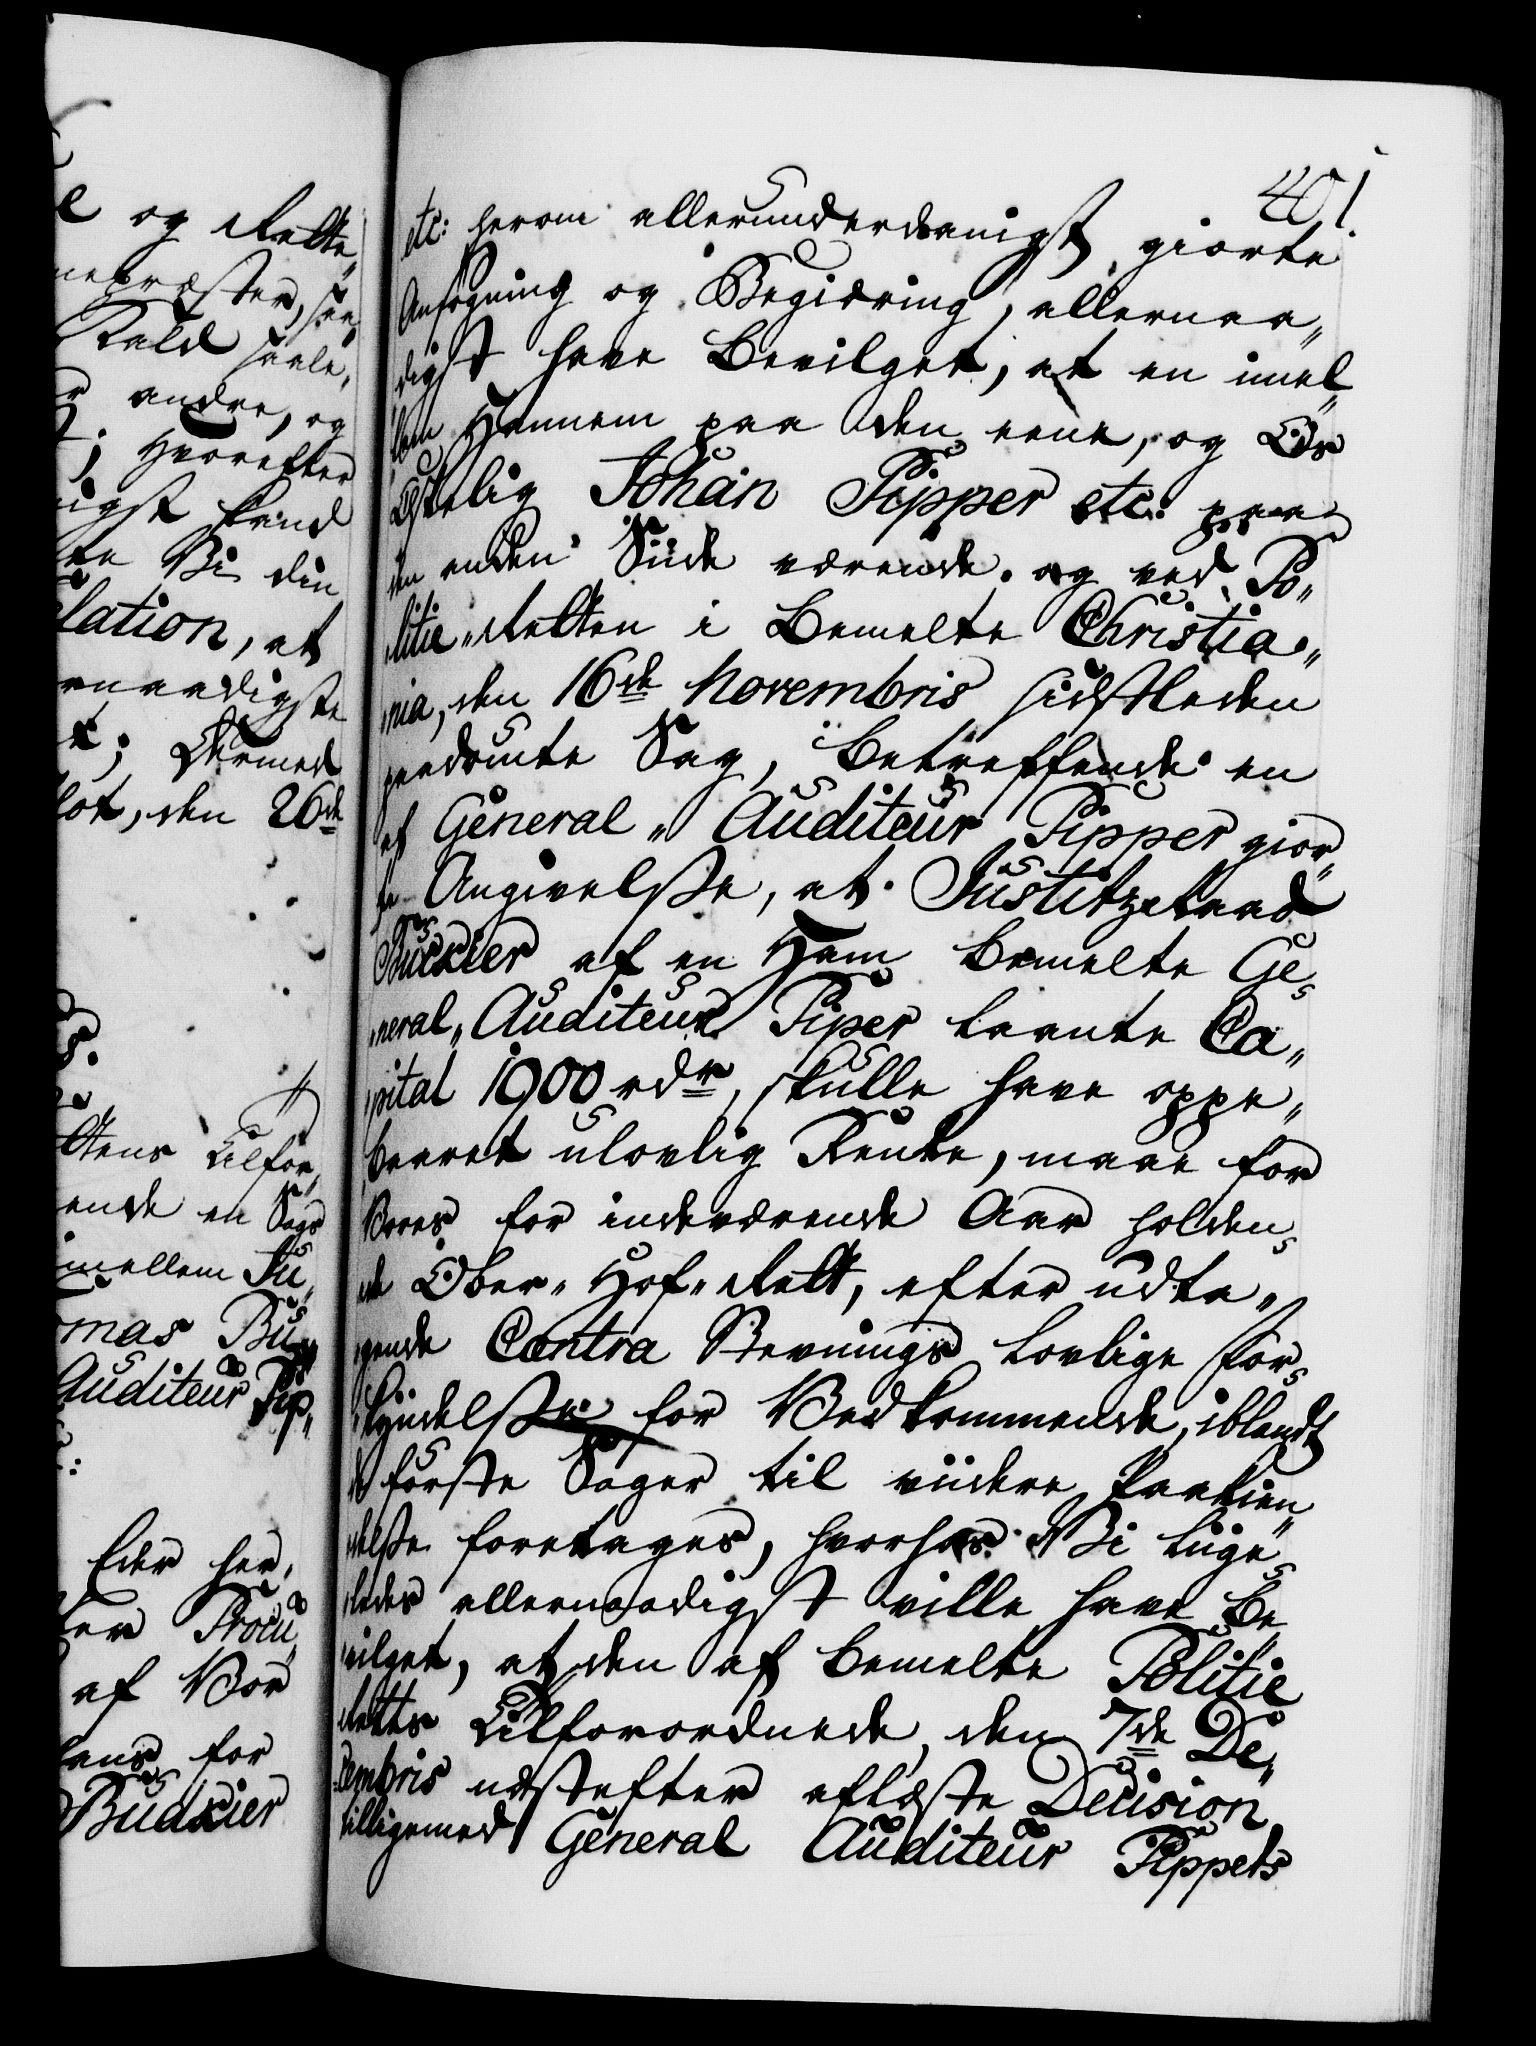 e og Rette„
nepræster, saa
Kald saale„
andre, og
Hvorefter
igst fund
te Vi din
lation, at
rnaadigste
t; Dermed
lot, den 26de
S.
ttens Tilfor„
ende en Sags
imellem Ju„
mas Bu„
Auditeur Pip„
Eder her„
ter Procu„
af Vor
hans for
Budxier
401
etc: herom allerunderdanigst giorte
Ansøgning og Begiæring, allernaa„
digst have Bevilget, at en imel„
lem Hannem paa den eene, og Os
Elskelig Johan Pipper etc: paa
den anden Siide værende, og ved Po„
litie„Retten i Bemelte Christia„
nia, den 16de Novembris sidstleden
paadømte Sag, Betreffende en
af General„Auditeur Pipper gior„
te Angivelsse, at Justitzraad
Buckier af en Ham Bemelte Ge„
neral„Auditeur Piper laante Ca„
pital 1900 rdr, skulle have oppe„
baaret ulovlig Rente, maae for
Vores for indeværende Aar holden„
de Ober„Hof„Rett, efter udta„
gende Contra Stevnings lovlige for„
kyndelsse for Vedkommende, iblandt
de første Sager til viidere Paakien„
delsse foretages, hvorhos Vi liige„
ledes allernaadigst ville have Be„
vilget, at den af bemelte Politie
Retts Tilforordnede den 7de De„
cembris næstefter aflagte Decision,
tilligemed General Auditeur Pippers